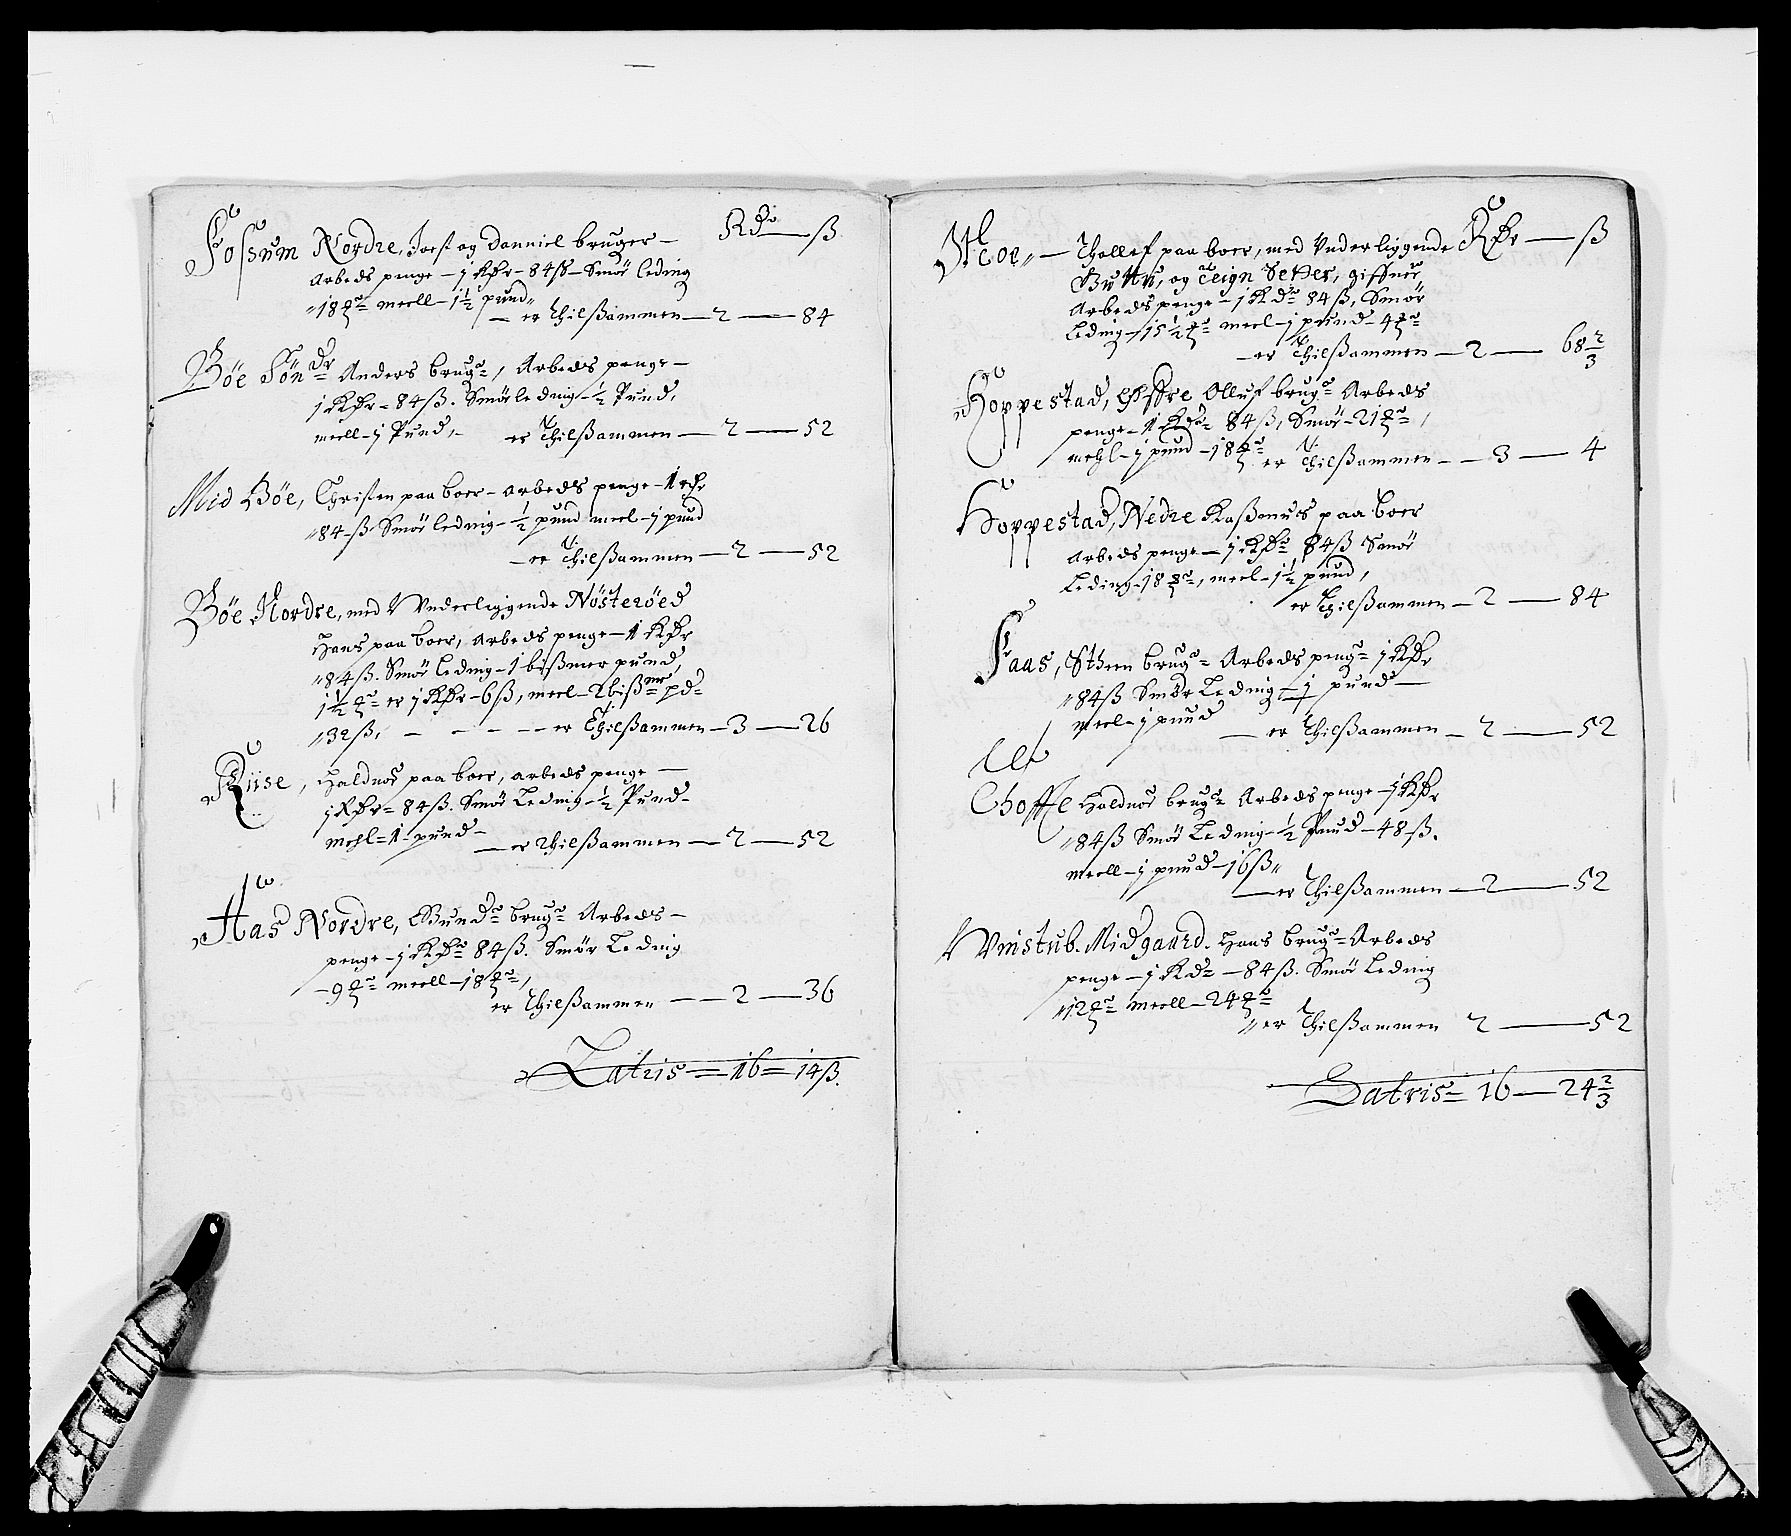 Rdr — ß
Fossum Nordre, Joest og Danniel bruger —
Arbeds penge — j Rdr — 84 ß — Smør leding
„18 mrk meell — 1½ pund„
— er Thilßammen — 2 — 84
Bøe Søndr Anders brugr, Arbeds penge —
j Rdr — 84 ß. Smør leding — ½ Pund,
meell — j Pund, — er Thilßammen — 2 — 52
Mid Bøe, Christen paa boer — arbeds penge — 1 rdr
„84 ß Smør leding — ½ pund meel — j pund
— er Thilßammen — 2 — 52
Bøe Nordre, med Underliggende Nøsterøed
Hans paa boer, Arbeds penge — 1 Rdr
„84 ß. Smør leding — 1 bißmer pund,
1½ mrk er j Rdr — 6 ß, meel — 2 bißmr pd
„32 ß, — — — — er Thilßammen — 3 — 26
Riise, Haldnor paa boer, arbeds penge —
j Rdr — 84 ß. Smør Leding — ½ Pund —
mehl — 1 pund —
— er Thilßammen — 2 — 52
Has Nordre, Gundr brugr Arbeds —
penge — j Rdr 84 ß. Smør Leding
— 9 mrk meell — 18 mrk,
er Thilßammen — — 2 — 36
Latris — 16 — 14 ß.
Rdr — ß
Moe„ — Thollef paa boer, med Underliggende
og Teign Setter, giffuer
Arbeds penge — j Rdr 84 ß, Smør
Leding — 15½ mrk meel — j pund — 4 mrk
— er Thilßammen — 2 — 68 2/3
Hoppestad, Øffre Olluf brugr Arbeds
penge — 1 Rdr 84 ß, Smør — 21 mrk,
mehl — j pund — 18 mrk
er Thilßammen — — 3 — 4
Hoppestad, Nedre Raßmus paa boer
Arbeds penge — j Rdr 84 ß Smør
Leding — 18 mrk, meel — 1½ pund,
er Thilßammen — 2 — 84
Faas, Sthen brugr Arbeds pengr j Rdr
„84 ß Smør Leding — j pund —
meel — j pund — er Thilßammen — 2 — 52
Choffe Haldnor brugr Arbeds penge — j Rdr
„84 ß Smør Leding — ½ Pund — 48 ß.
meell — j pund — 16 ß„
— er Thilßammen — 2 — 52
Vinstub. Midgaard. Hans brugr Arbeds
penge — j Rdr — 84 ß. Smør Leding
„12 mrk meell — 24 mrk
„ er Thilßammen 2 — 52
Latris — 16 — 24 2/3